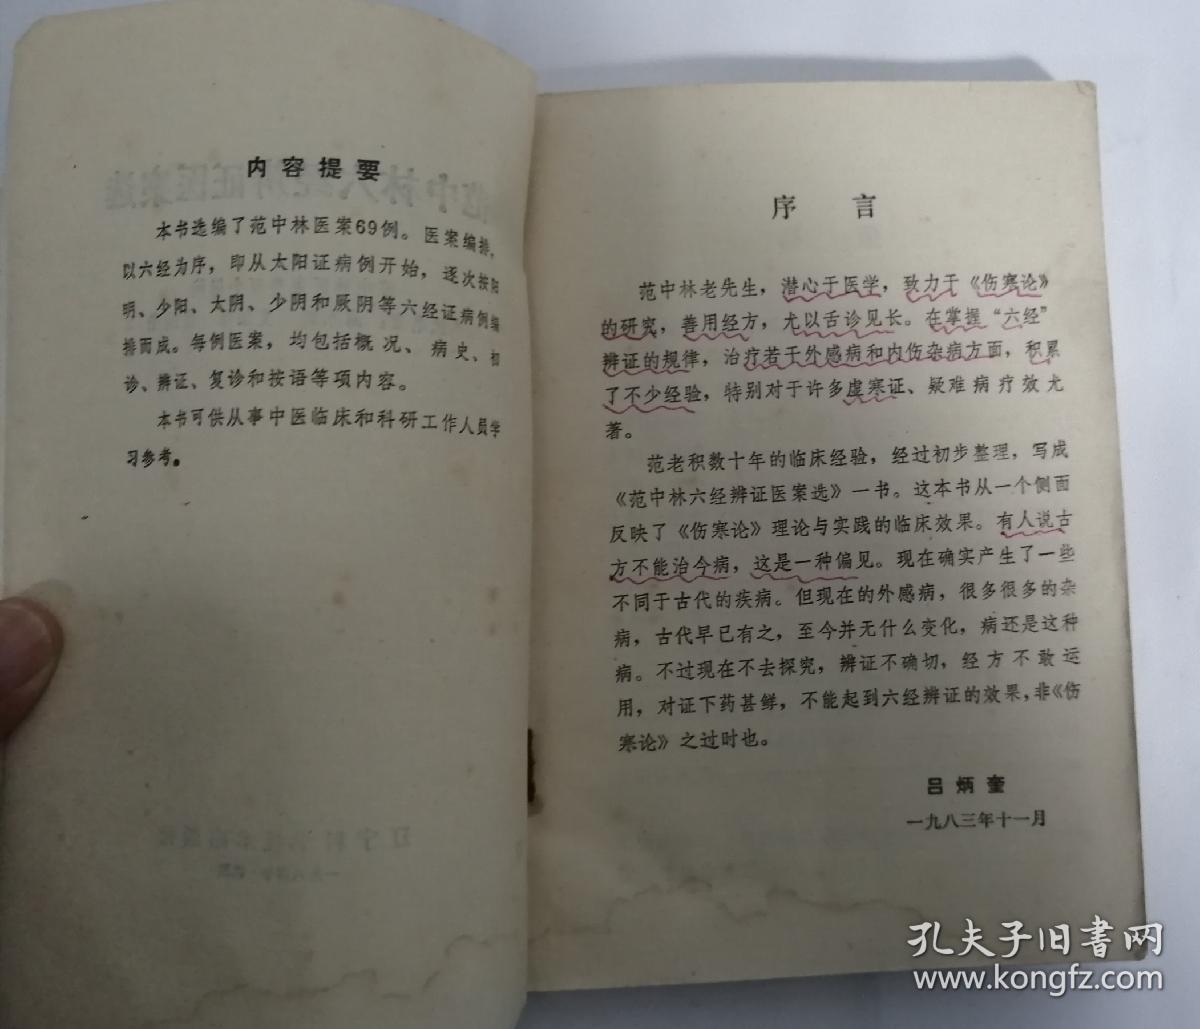 内容提要
本书选编了范中林医案69例。医案编排，
以六经为序，即从太阳证病例开始，逐次按阳
明、少阳、太阴、少阴和厥阴等六经证病例编
排而成。每例医案，均包括概况、病史、初
诊、辨证、复诊和按语等项内容。
本书可供从事中医临床和科研工作人员学
习参考。
序言
范中林老先生，潜心于医学，致力于《伤寒论》
的研究，善用经方，尤以舌诊见长。在掌握“六经”
辨证的规律，治疗若干外感病和内伤杂病方面，积累
了不少经验，特别对于许多虚寒证、疑难病疗效尤
著。
范老积数十年的临床经验，经过初步整理，写成
《范中林六经辨证医案选》一书。这本书从一个侧面
反映了《伤寒论》理论与实践的临床效果。有人说古
方不能治今病，这是一种偏见。现在确实产生了一些
不同于古代的疾病。但现在的外感病，很多很多的杂
病，古代早已有之，至今并无什么变化，病还是这种
病。不过现在不去探究，辨证不确切，经方不敢运
用，对证下药甚鲜，不能起到六经辨证的效果，非《伤
寒论》之过时也。
吕炳奎
一九八三年十一月
孔夫子旧书网
www.kongfz.com